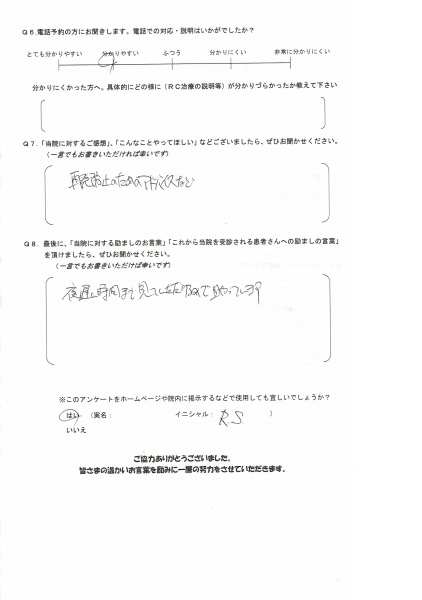 Q6.電話予約の方にお聞きします。電話での対応・説明はいかがでしたか?
とても分かりやすい 分かりやすい ふつう 分かりにくい 非常に分かりにくい
分かりにくかった方へ。具体的にどの様に(RC治療の説明等)が分かりづらかったか教えて下さい
Q7.「当院に対するご感想」、「こんなことやってほしい」などございましたら、ぜひお聞かせください。
(一言でもお書きいただければ幸いです)
再発防止のためのアドバイスなど
Q8.最後に、「当院に対する励ましのお言葉」「これから当院を受診される患者さんへの励ましの言葉」
を頂けましたら、ぜひお聞かせください。
(一言でもお書きいただけば幸いです)
夜遅い時間まで見ていただけるので助かっています
※このアンケートをホームページや院内に掲示するなどで使用しても宜しいでしょうか?
はい (実名: イニシャル: R S )
いいえ
ご協力ありがとうございました。
皆さまの温かいお言葉を励みに一層の努力をさせていただきます。